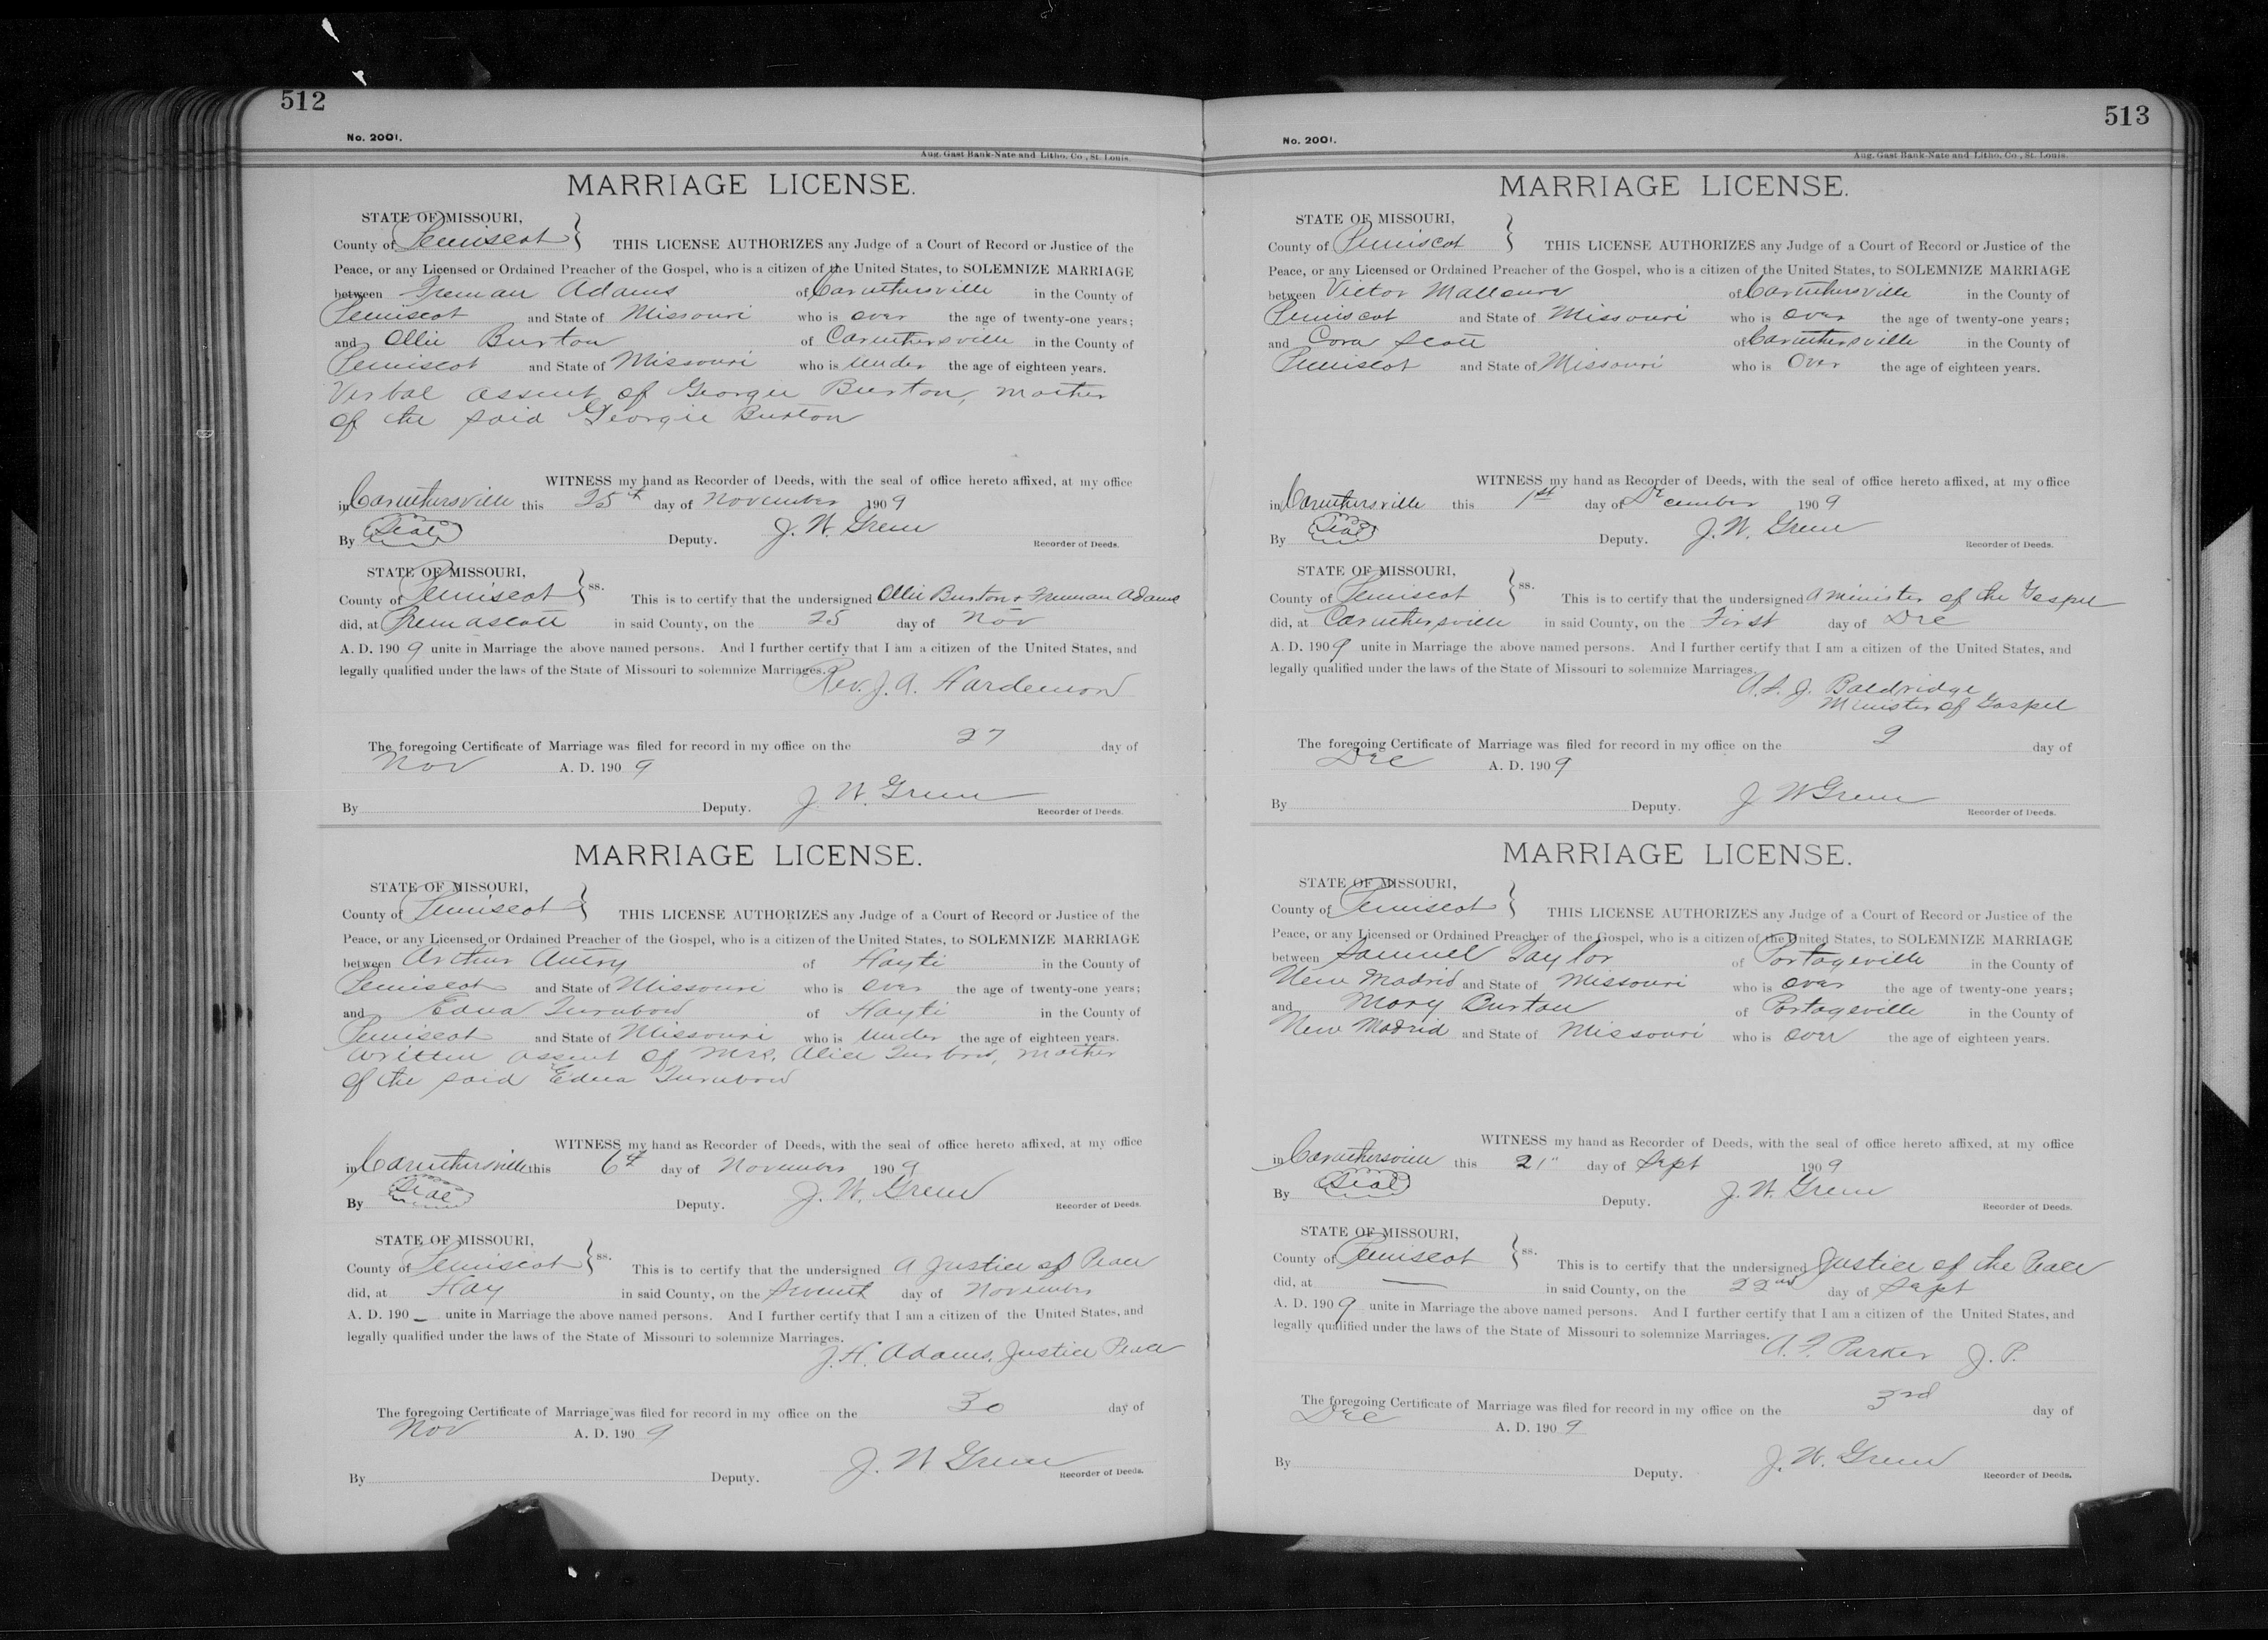 512
No. 2001.
Aug. Gast Bank-Note and Litho. Co., St. Louis.
MARRIAGE LICENSE.
STATE OF MISSOURI,
County of Pemiscot } THIS LICENSE AUTHORIZES any Judge of a Court of Record or Justice of the
Peace, or any Licensed or Ordained Preacher of the Gospel, who is a citizen of the United States, to SOLEMNIZE MARRIAGE
between Freman Adams of Caruthersville in the County of
Pemiscot and State of Missouri who is over the age of twenty-one years;
and Ollie Burton of Caruthersville in the County of
Pemiscot and State of Missouri who is under the age of eighteen years.
Verbal assent of Georgie Burton, mother
of the said Georgie Burton
WITNESS my hand as Recorder of Deeds, with the seal of office hereto affixed, at my office
in Caruthersville this 25th day of November 1909
By Seal Deputy. J. W. Green Recorder of Deeds.
STATE OF MISSOURI,
County of Pemiscot } ss. This is to certify that the undersigned Ollie Burton & Freman Adams
did, at Premascott in said County, on the 25 day of Nov
A. D. 1909 unite in Marriage the above named persons. And I further certify that I am a citizen of the United States, and
legally qualified under the laws of the State of Missouri to solemnize Marriages.
Rev. J. A. Hardemon
The foregoing Certificate of Marriage was filed for record in my office on the 27 day of
Nov A. D. 1909
By Deputy. J. W. Green Recorder of Deeds.
MARRIAGE LICENSE.
STATE OF MISSOURI,
County of Pemiscot } THIS LICENSE AUTHORIZES any Judge of a Court of Record or Justice of the
Peace, or any Licensed or Ordained Preacher of the Gospel, who is a citizen of the United States, to SOLEMNIZE MARRIAGE
between Arthur Autry of Hayti in the County of
Pemiscot and State of Missouri who is over the age of twenty-one years;
and Edna Turnbow of Hayti in the County of
Pemiscot and State of Missouri who is under the age of eighteen years.
written assent of Mrs. Alice Turbow, mother
of the said Edna Turnbow
WITNESS my hand as Recorder of Deeds, with the seal of office hereto affixed, at my office
in Caruthersville this 6th day of November 1909
By Seal Deputy. J. W. Green Recorder of Deeds.
STATE OF MISSOURI,
County of Pemiscot } ss. This is to certify that the undersigned A Justice of Peace
did, at Hay in said County, on the Seventh day of November
A. D. 190 – unite in Marriage the above named persons. And I further certify that I am a citizen of the United States, and
legally qualified under the laws of the State of Missouri to solemnize Marriages.
J. H. Adams, Justice Peace
The foregoing Certificate of Marriage was filed for record in my office on the 30 day of
Nov A. D. 1909
By Deputy. J. W. Green Recorder of Deeds.
513
No. 2001.
Aug. Gast Bank-Note and Litho. Co., St. Louis.
MARRIAGE LICENSE.
STATE OF MISSOURI,
County of Pemiscot } THIS LICENSE AUTHORIZES any Judge of a Court of Record or Justice of the
Peace, or any Licensed or Ordained Preacher of the Gospel, who is a citizen of the United States, to SOLEMNIZE MARRIAGE
between Victor of Caruthersville in the County of
Pemiscot and State of Missouri who is over the age of twenty-one years;
and Cora Scott of Caruthersville in the County of
Pemiscot and State of Missouri who is Over the age of eighteen years.
WITNESS my hand as Recorder of Deeds, with the seal of office hereto affixed, at my office
in Caruthersville this 1st day of December 1909
By Seal Deputy. J. W. Green Recorder of Deeds.
STATE OF MISSOURI,
County of Pemiscot } ss. This is to certify that the undersigned A Minister of the Gospel
did, at Caruthersville in said County, on the First day of Dec
A. D. 1909 unite in Marriage the above named persons. And I further certify that I am a citizen of the United States, and
legally qualified under the laws of the State of Missouri to solemnize Marriages.
A. S. J. Baldridge
Minister of Gospel
The foregoing Certificate of Marriage was filed for record in my office on the 2 day of
Dec A. D. 1909
By Deputy. J W Green Recorder of Deeds.
MARRIAGE LICENSE.
STATE OF MISSOURI,
County of Pemiscot } THIS LICENSE AUTHORIZES any Judge of a Court of Record or Justice of the
Peace, or any Licensed or Ordained Preacher of the Gospel, who is a citizen of the United States, to SOLEMNIZE MARRIAGE
between Samuel Taylor of Portageville in the County of
New Madrid and State of Missouri who is over the age of twenty-one years;
and Mary Burton of Portageville in the County of
New Madrid and State of Missouri who is over the age of eighteen years.
WITNESS my hand as Recorder of Deeds, with the seal of office hereto affixed, at my office
in Caruthersville this 21" day of Sept 1909
By Seal Deputy. J. W. Green Recorder of Deeds.
STATE OF MISSOURI,
County of Pemiscot } ss. This is to certify that the undersigned Justice of the Peace
did, at — in said County, on the 22nd day of Sept
A. D. 1909 unite in Marriage the above named persons. And I further certify that I am a citizen of the United States, and
legally qualified under the laws of the State of Missouri to solemnize Marriages.
A. F. Parker J. P.
The foregoing Certificate of Marriage was filed for record in my office on the 3rd day of
Dec A. D. 1909
By Deputy. J. W. Green Recorder of Deeds.